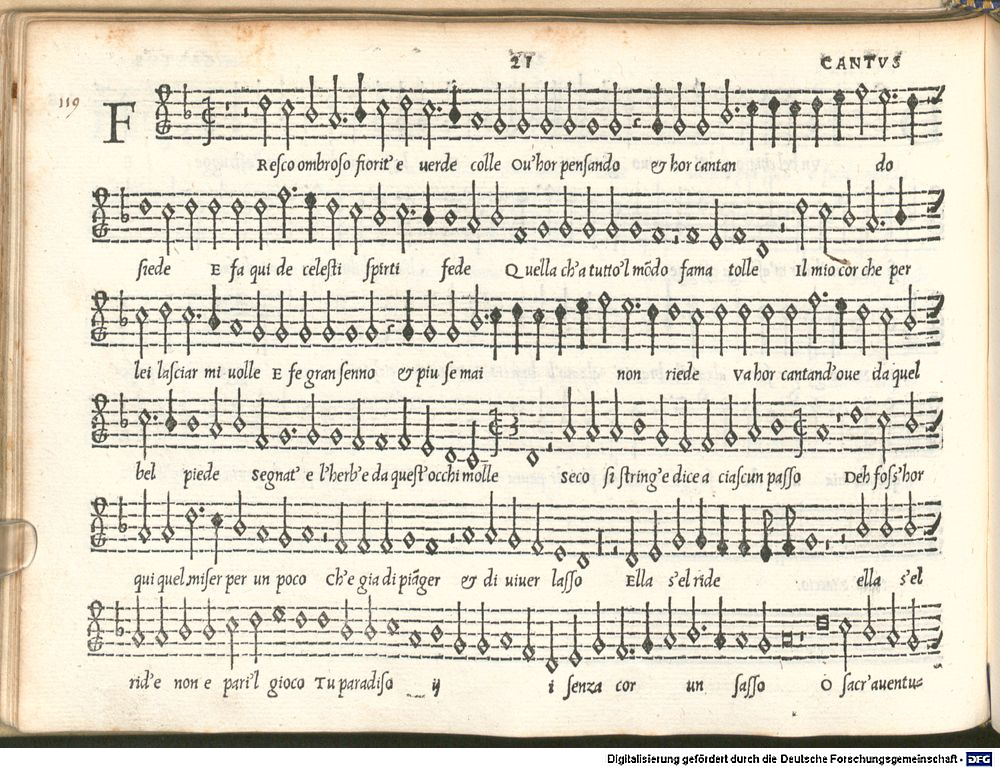 27 CANTVS
119
FResco ombroso fiorit'e uerde colle Ou'hor pensando & hor cantan do
siede E fa qui de celesti spirti fede Quella ch'a tutto'l mōdo fama tolle Il mio cor che per
lei lasciar mi uolle E fe gran senno & piu se mai non riede Va hor cantand'oue da quel
bel piede Segnat'e l'herb'e da quest'occhi molle Seco si string'e dice a ciascun passo Deh foss'hor
qui quel miser per un poco Ch'e gia di piāger & di uiuer lasso Ella s'el ride ella s'el
rid'e non e pari'l gioco Tu paradiso ij i senza cor un sasso O sacr'auentu=
Digitalisierung gefördert durch die Deutsche Forschungsgemeinschaft - DFG